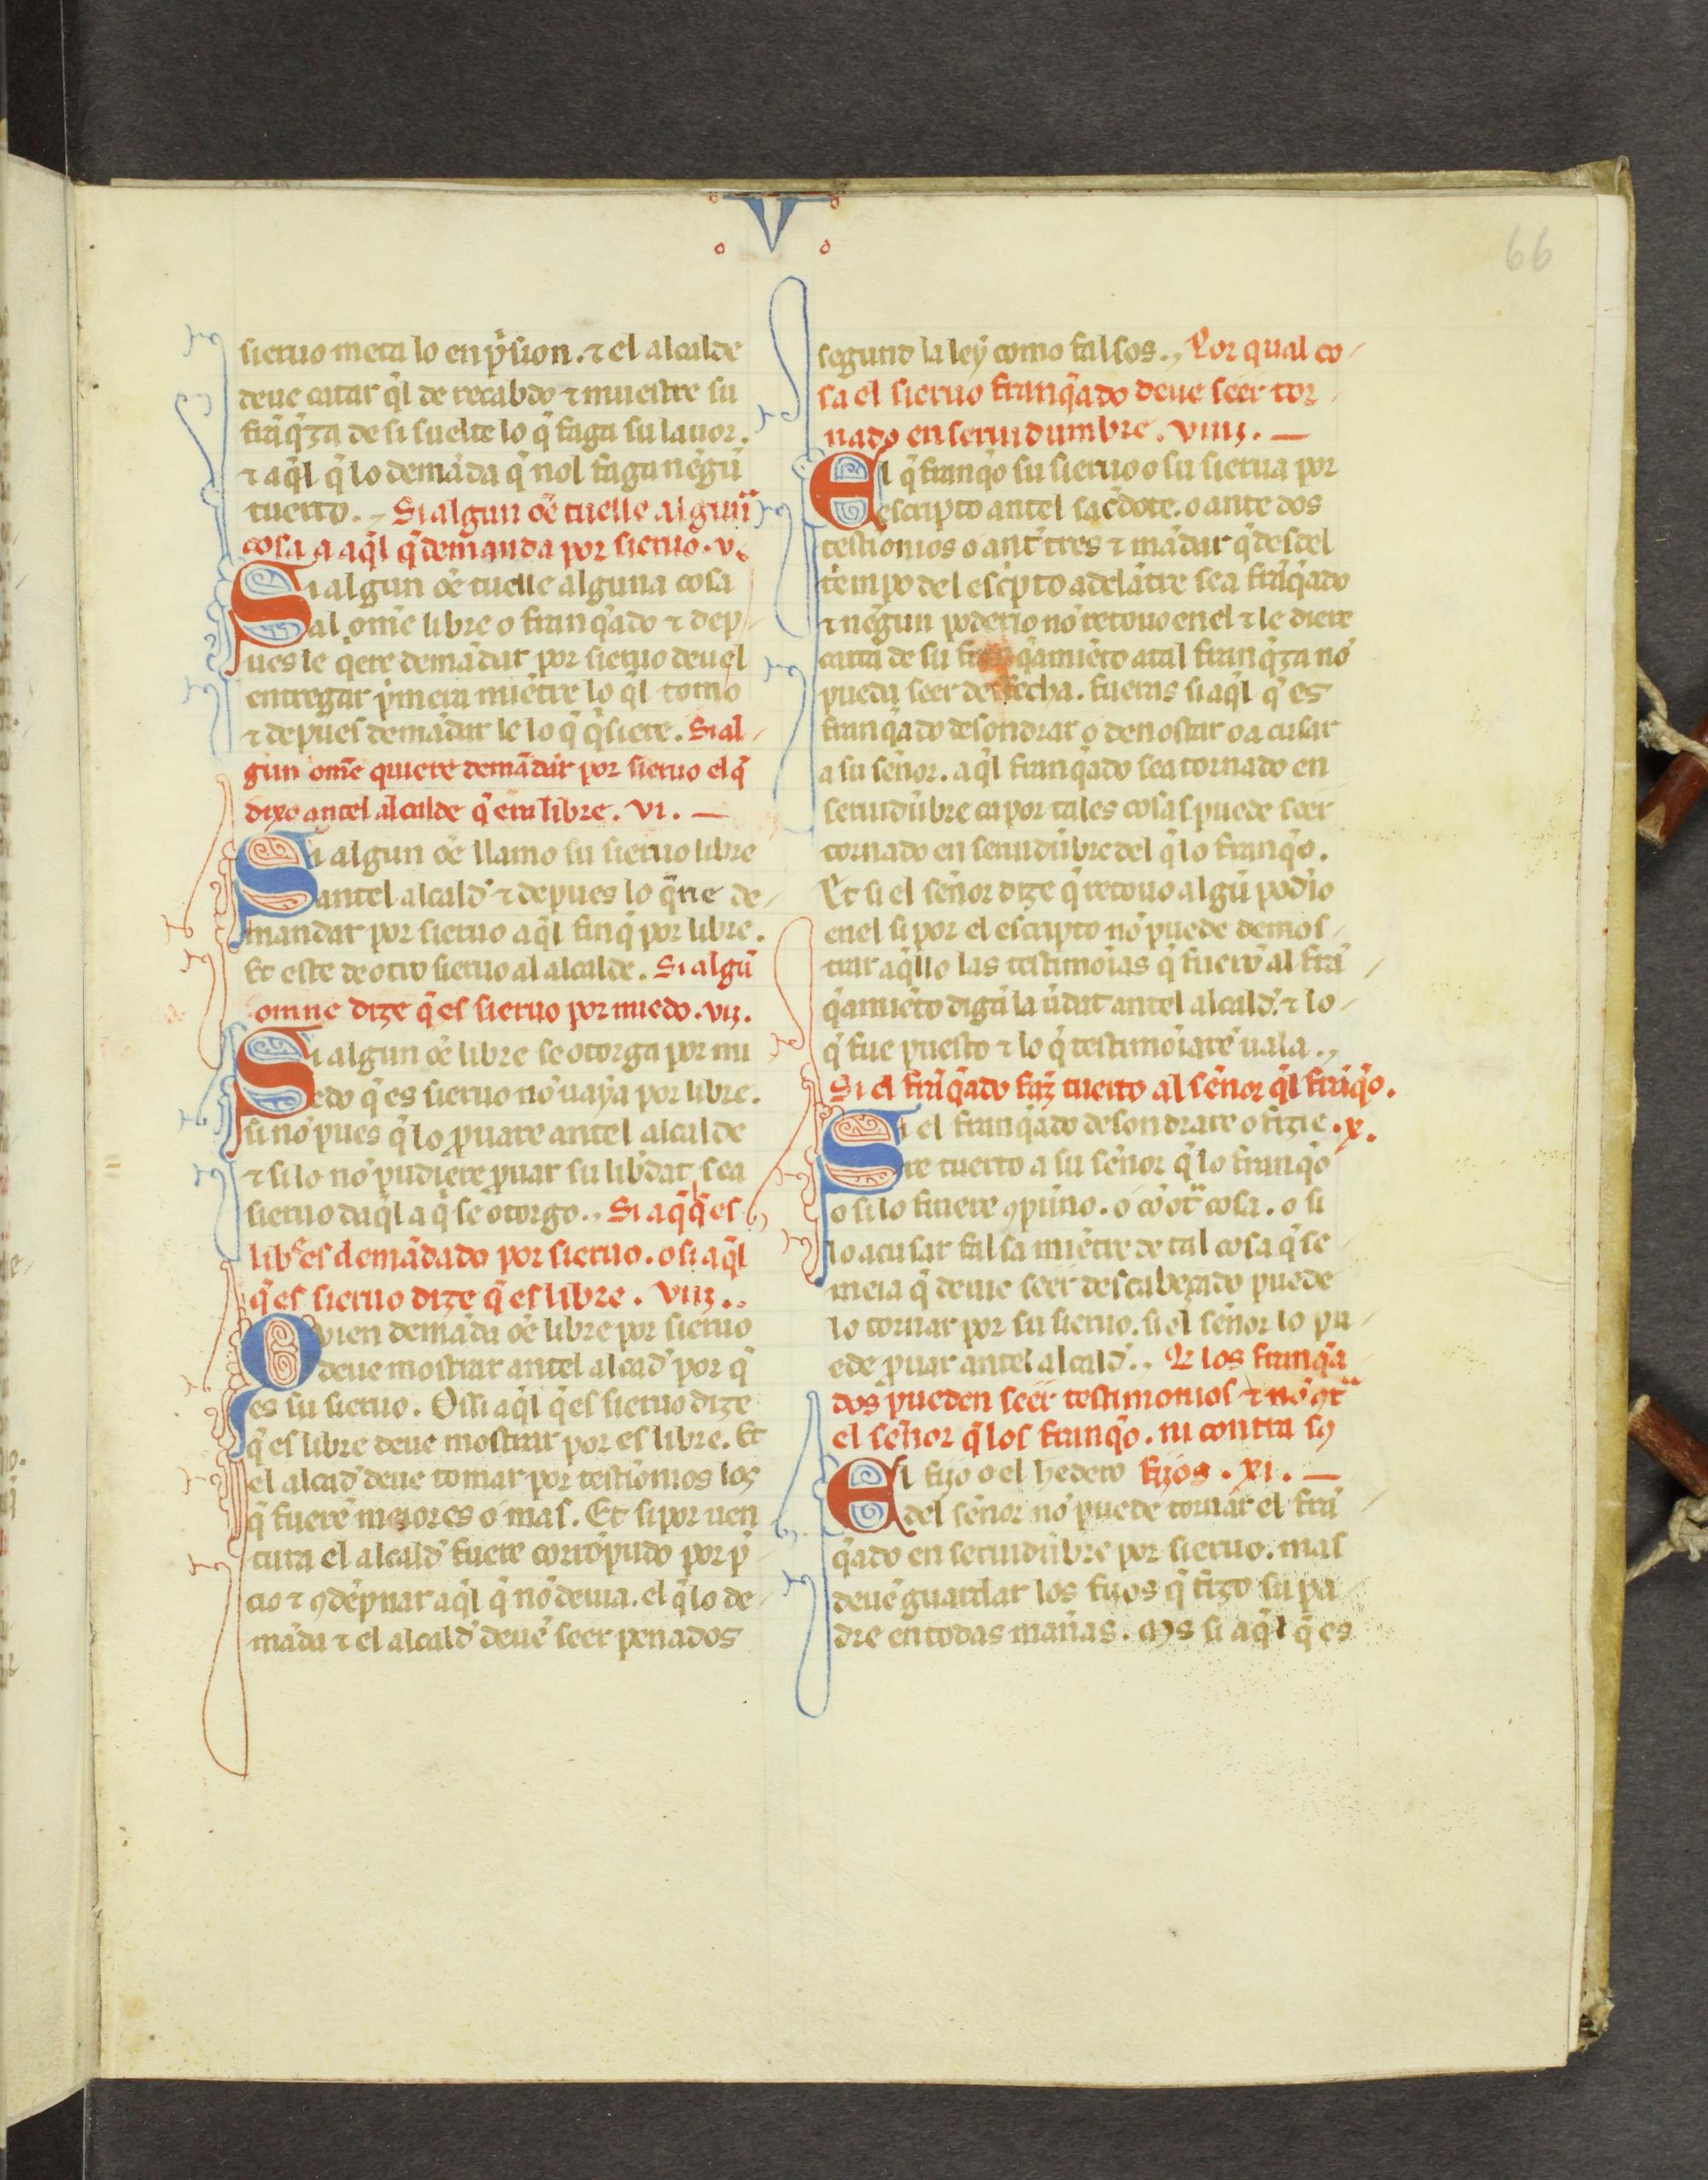 V
66
sieruo meta lo en p̃sion. ⁊ el alcalde
deue catar q̃l de recabdo ⁊ muestre su
frãq̃za de si suelte lo q̃ faga su lauor.
⁊ aq̃l q̃ lo demãda q̃ nol faga negũ
tuerto. Si algun oẽ tuelle algunᵃ
cosa a aq̃l q̃ demanda por sieruo. v.
Si algun oẽ tuelle alguna cosa
al om̃e libre o franq̃ado ⁊ dep
ues le q̃ere demãdar por sieruo deuel
entregar p̃mera miẽtre lo q̃l tomo
⁊ depues demãdar le lo q̃ q̃siere. Si al
gun om̃e quiere demãdar por sieruo el q̃
dixo antel alcalde q̃ era libre. vi.
Si algun oẽ llamo su sieruo libre
antel alcald̾ ⁊ depues lo q̃ne de
mandar por sieruo aq̃l finq̃ por libre.
Et este de otro sieruo al alcalde. Si algũ
omne dize q̃ es sieruo por miedo. vij.
Si algun oẽ libre se otorga por mi
edo q̃ es sieruo nõ uaya por libre.
si nõ pues q̃ lo prouare antel alcalde
⁊ si lo nõ pudiere prouar su lib̃dat sea
sieruo daq̃l a q̃ se otorgo. Si aq̃ q̃ es
libʳe es demãdado por sieruo. o si aq̃l
q̃ es sieruo dize q̃ es libre. viij.
Quien demãda oẽ libre por sieruo
deue mostrar antel alcad̾ por q̃
es su sieruo. Ossi aq̃l q̃ es sieruo dize
q̃ es libre deue mostrar por es libre. Et
el alcad̾ deue tomar por testimonios los
q̃ fuerẽ meiores o mas. Et si por uen
tura el alcald̾ fuere corrõpudo por p̃
cio ⁊ ꝯdẽpnar aq̃l q̃ nõ deuia. el q̃ lo de
mãda ⁊ el alcald̾ deuẽ seer penados
segund la ley como falsos. Por qual co
sa el sieruo franq̃ado deue seer tor
nado en seruidumbre. viiij.
El q̃ franq̃o su sieruo o su sierua por
escripto antel sac̃dote. o ante dos
testimonios o ant̾ tres ⁊ mãdar q̃ desdel
tẽmpo del esc̃pto adelãtre sea frãq̃ado
⁊ negun poderio nõ retouo en el ⁊ le diere
carta de su franq̃amiẽto atal franq̃za nõ
pueda seer desfecha. fueras si aq̃l q̃ es
franq̃ado desondrar o denostar o acusar
a su señor. aq̃l franq̃ado sea tornado en
seruidũbre ca por tales cosas puede seer
tornado en seruidũbre del q̃ lo franq̃o.
Et si el señor dize q̃ retouo algũ pod̾io
en el si por el escripto nõ puede demos
trar aq̃llo las testimoĩas q̃ fuerõ al frã
q̃amiẽto digã la ũdat antel alcald̾. ⁊ lo
q̃ fue puesto ⁊ lo q̃ testimoĩarẽ uala.
Si el frãq̃ado faz tuerto al señor q̃l frãq̃o.
Si el franq̃ado desondrare o fizie .x.
re tuerto a su señor q̃ lo franq̃o
o si lo firiere ꝯ pũno. o cõ otᵃ cosa. o si
lo acusar falsa miẽtre de tal cosa q̃ se
meia q̃ deue seer descabeçado puede
lo tornar por su sieruo. si el señor lo pu
ede prouar antel alcald̾. Q̃ los franq̃a
dos pueden seer testimonios ⁊ nõ ꝯtᵃ
el señor q̃ los franq̃o. ni contra sꝯ
El fijo o el hedero fijos. xi.
del señor nõ puede tornar el frã
q̃ado en seruidũbre por sieruo. mas
deuẽ guardar los fijos q̃ fizo su pa
dre en todas mañas. Mas si aq̃l q̃ es